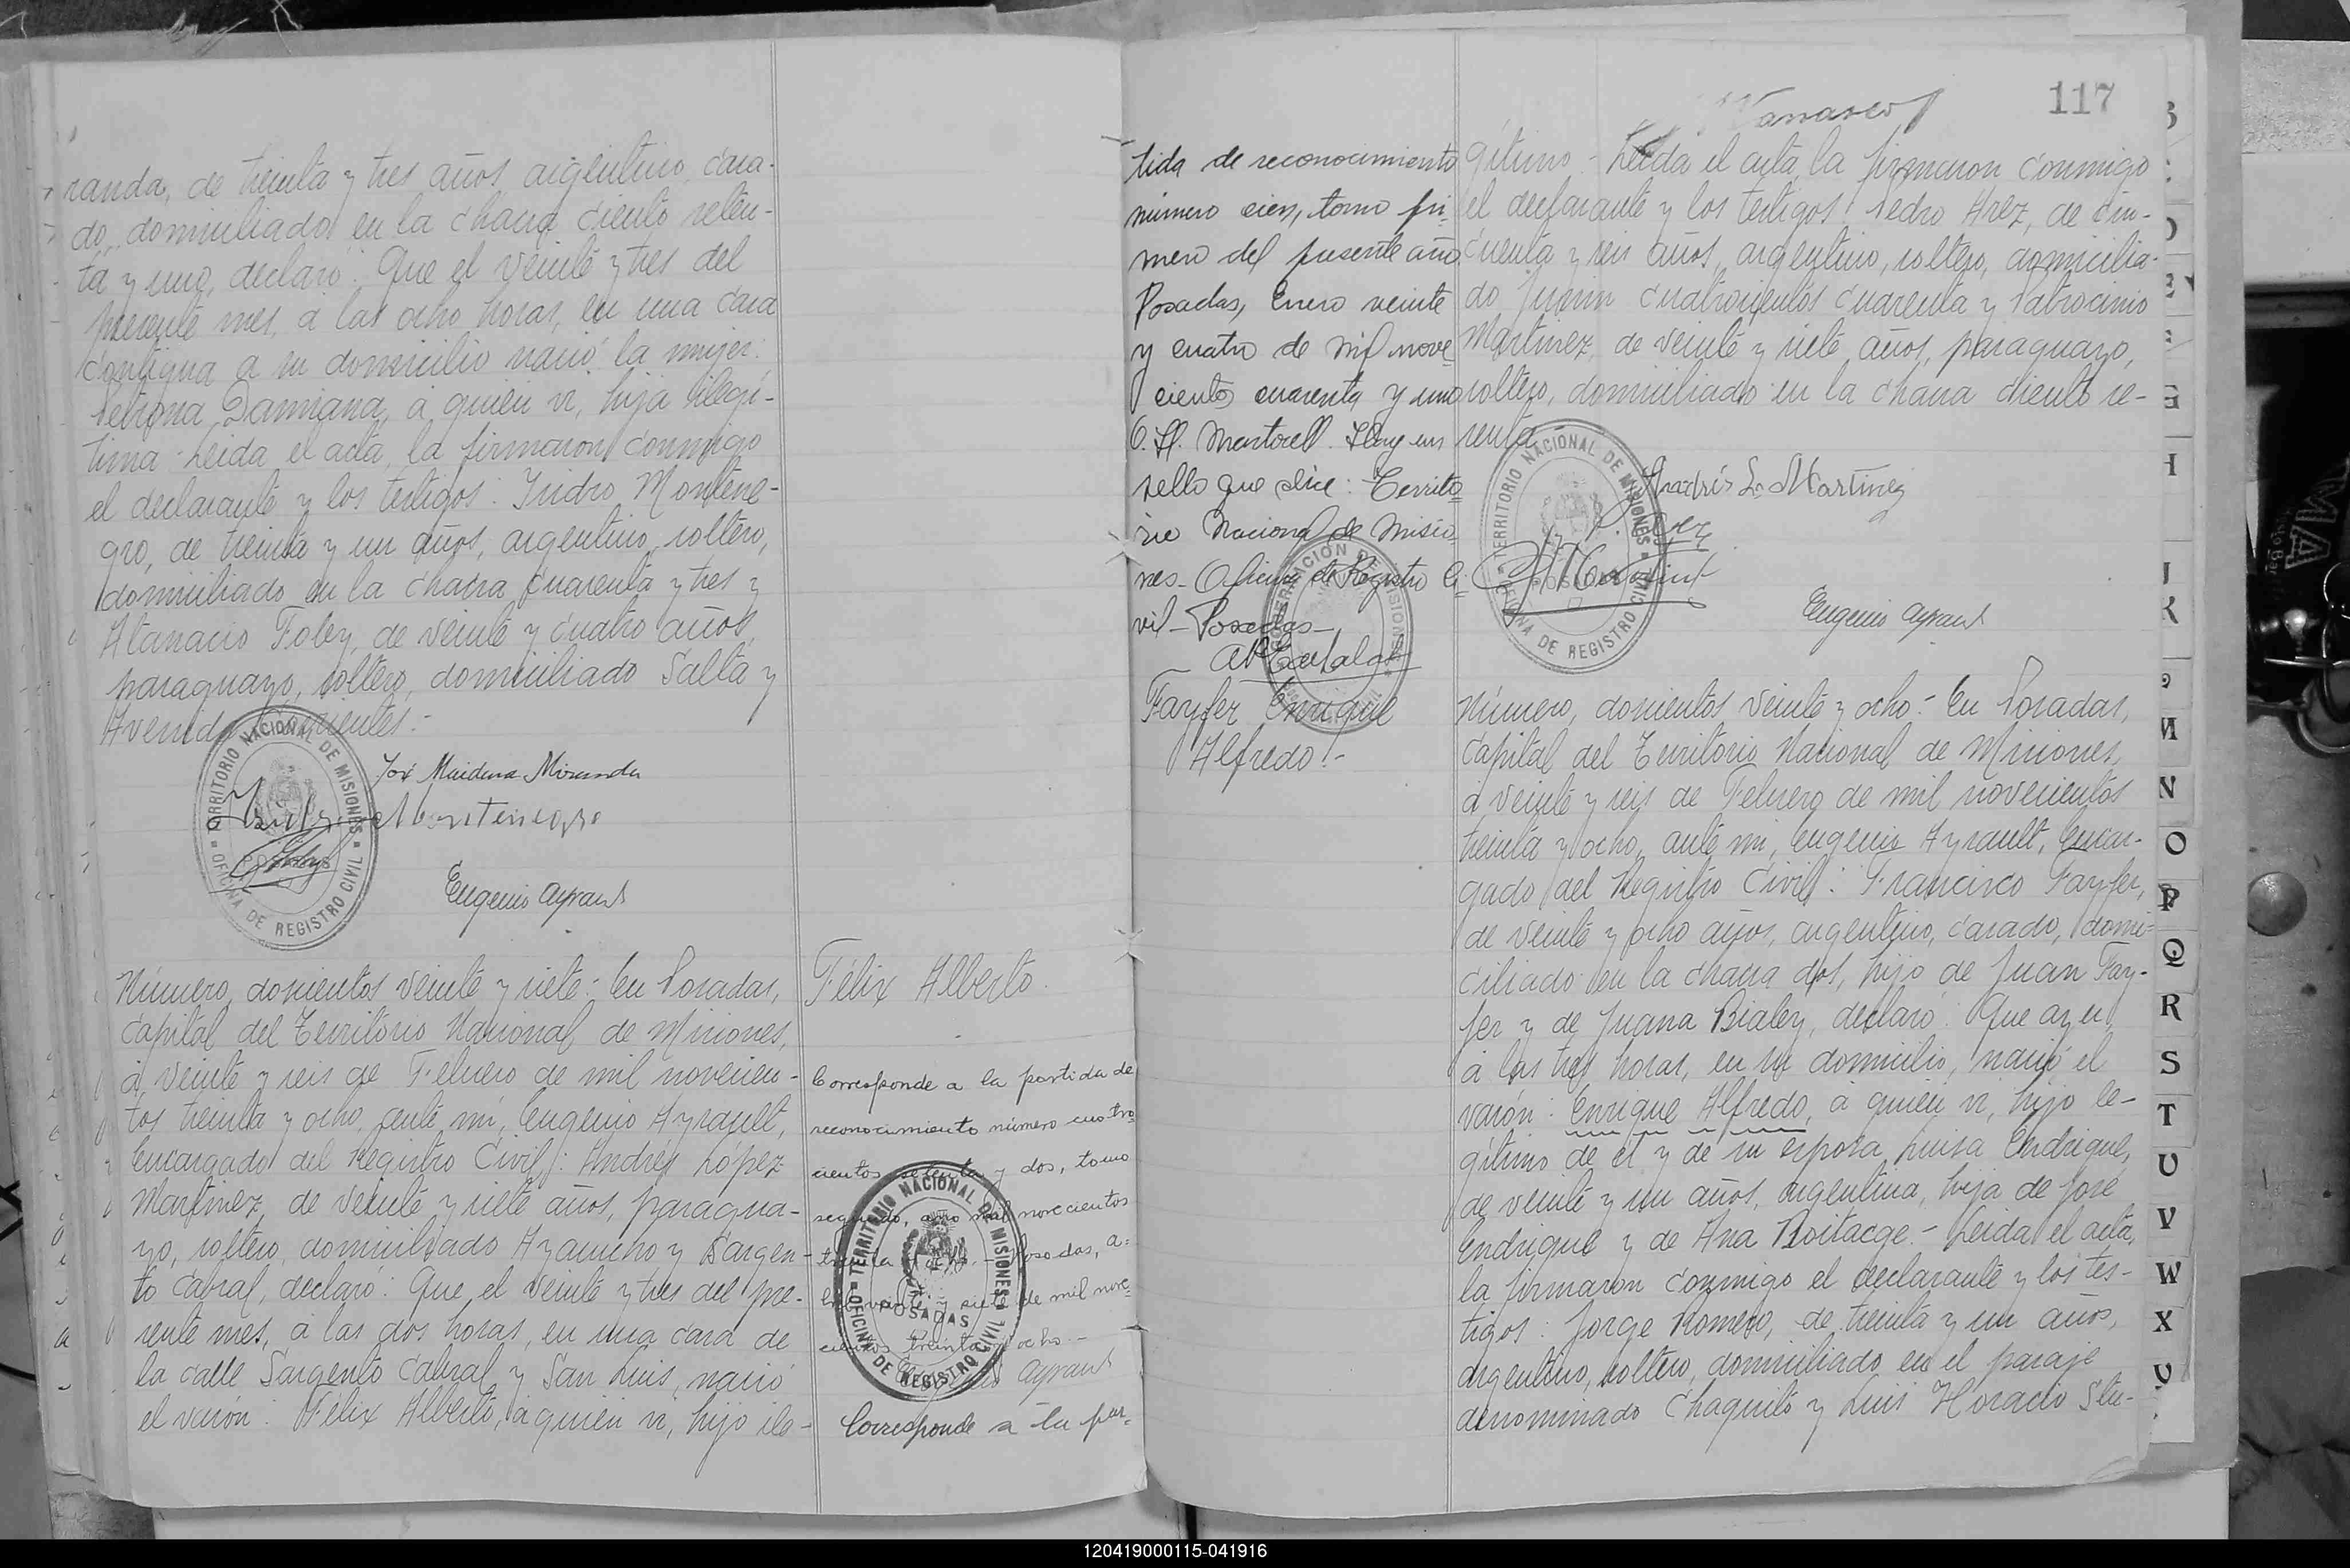 randa, de treinta y tres años, argentino, casa-
do, domiciliado en la chacra ciento seten-
ta y uno, declaró: Que el veinte y tres del
presente mes, a las ocho horas, en una casa
contigua a su domicilio nació la mujer:
Petrona Damiana, a quien vi, hija ilegí-
tima - Leida el acta, la firmaron conmigo
el declarante y los testigos: Isidro Montene-
gro, de treinta y un años, argentino, soltero,
domiciliado en la chacra cuarenta y tres y
Atanacio Foley, de veinte y cuatro años,
paraguayo, soltero, domiciliado Salta y
Avenida Corrientes.-
TERRITORIO NACIONAL DE MISIONES
POSADAS
OFICINA DE REGISTRO CIVIL
José Maidana Miranda
Isidro Montenegro
Foley
Eugenio Ayrault
Número, doscientos veinte y siete: En Posadas,
capital del Territorio Nacional de Misiones,
a veinte y seis de Febrero de mil novecien-
tos treinta y ocho, ante mi, Eugenio Ayrault,
Encargado del Registro Civil: Andrés López
Martinez, de veinte y siete años, paragua-
yo, soltero, domiciliado Ayacucho y Sargen-
to Cabral, declaró: Que el veinte y tres del pre-
sente mes, a las dos horas, en una casa de
la calle Sargento Cabral y San Luis, nació
el varón: Félix Alberto, a quien vi, hijo ile-
Félix Alberto.
Corresponde a la partida de
reconocimiento número cuatro
cientos setenta y dos, tomo
segundo, año mil novecientos
treinta y ocho.- Posadas, a-
veinte y siete de mil nove-
cientos treinta y ocho.-
Eugenio Ayrault
TERRITORIO NACIONAL DE MISIONES
POSADAS
OFICINA DE REGISTRO CIVIL
Corresponde a la par-
tida de reconocimiento
número cien, tomo pri-
mero del presente año
Posadas, Enero veinte
y cuatro de mil nove-
cientos cuarenta y uno
O. H. Martorell. Hay un
sello que dice: Territo-
rio Nacional de Misio-
nes - Oficina de Registro Ci-
vil - Posadas -
Fayfer Enrique
Alfredo.-
117
gítimo - Leida el acta, la firmaron conmigo
el declarante y los testigos: Pedro Arez, de cin-
cuenta y seis años, argentino, soltero, domicilia-
do Junin cuatrocientos cuarenta y Patrocinio
Martinez, de veinte y siete años, paraguayo,
soltero, domiciliado en la chacra ciento se-
senta.
TERRITORIO NACIONAL DE MISIONES
POSADAS
OFICINA DE REGISTRO CIVIL
Andrés L. Martinez
Eugenio Ayrault
Número, doscientos veinte y ocho.- En Posadas,
capital del Territorio Nacional de Misiones,
a veinte y seis de Febrero de mil novecientos
treinta y ocho, ante mi, Eugenio Ayrault, Encar-
gado del Registro Civil: Francisco Fayfer,
de veinte y ocho años, argentino, casado, domi-
ciliado en la chacra dos, hijo de Juan Fay-
fer y de Juana Bialey, declaró: Que ayer,
a las tres horas, en su domicilio, nació el
varón: Enrique Alfredo, a quien vi, hijo le-
gítimo de él y de su esposa Luisa Endrique,
de veinte y un años, argentina, hija de José
Endrique y de Ana Boitacge.- Leida el acta,
la firmaron conmigo el declarante y los tes-
tigos: Jorge Romero, de treinta y un años,
argentino, soltero, domiciliado en el paraje
denominado Chaquito y Luis Horacio Stu-
N
O
P
Q
R
S
T
U
V
W
X
120419000115-041916